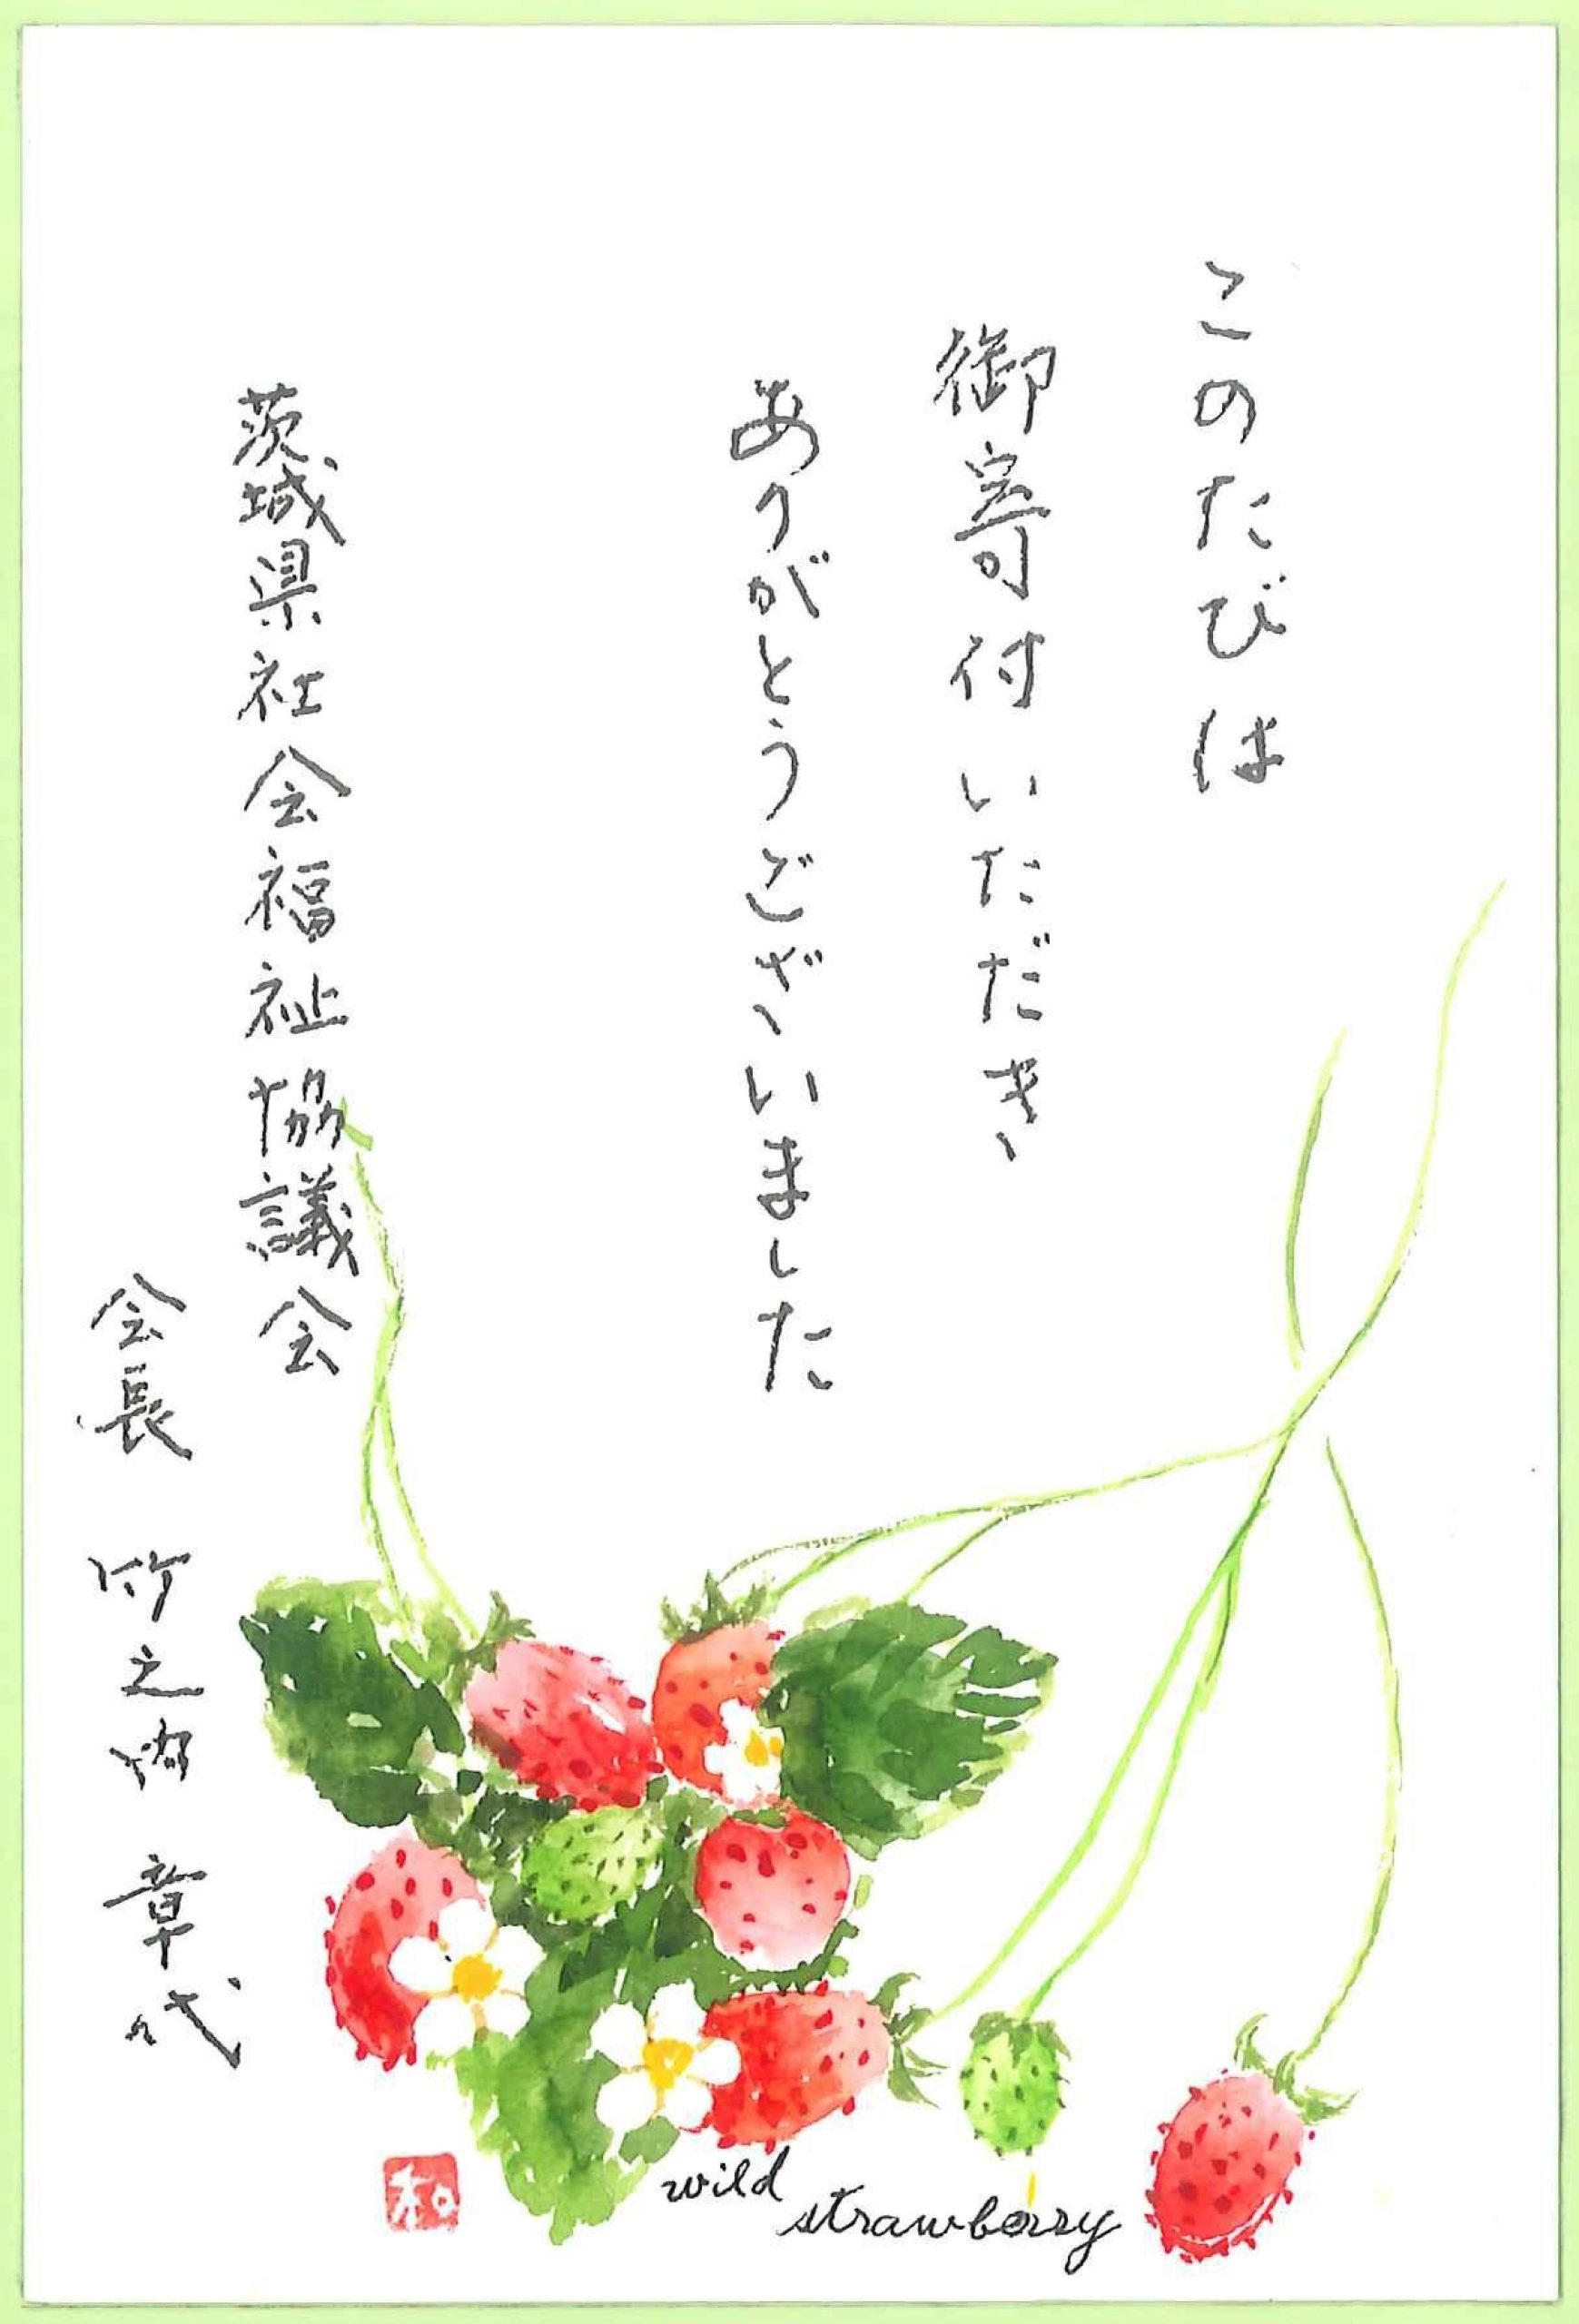 このたびは
御寄付いただき
ありがとうございました
茨城県社会福祉協議会
会長 竹之内 章代
wild
strawberry
和